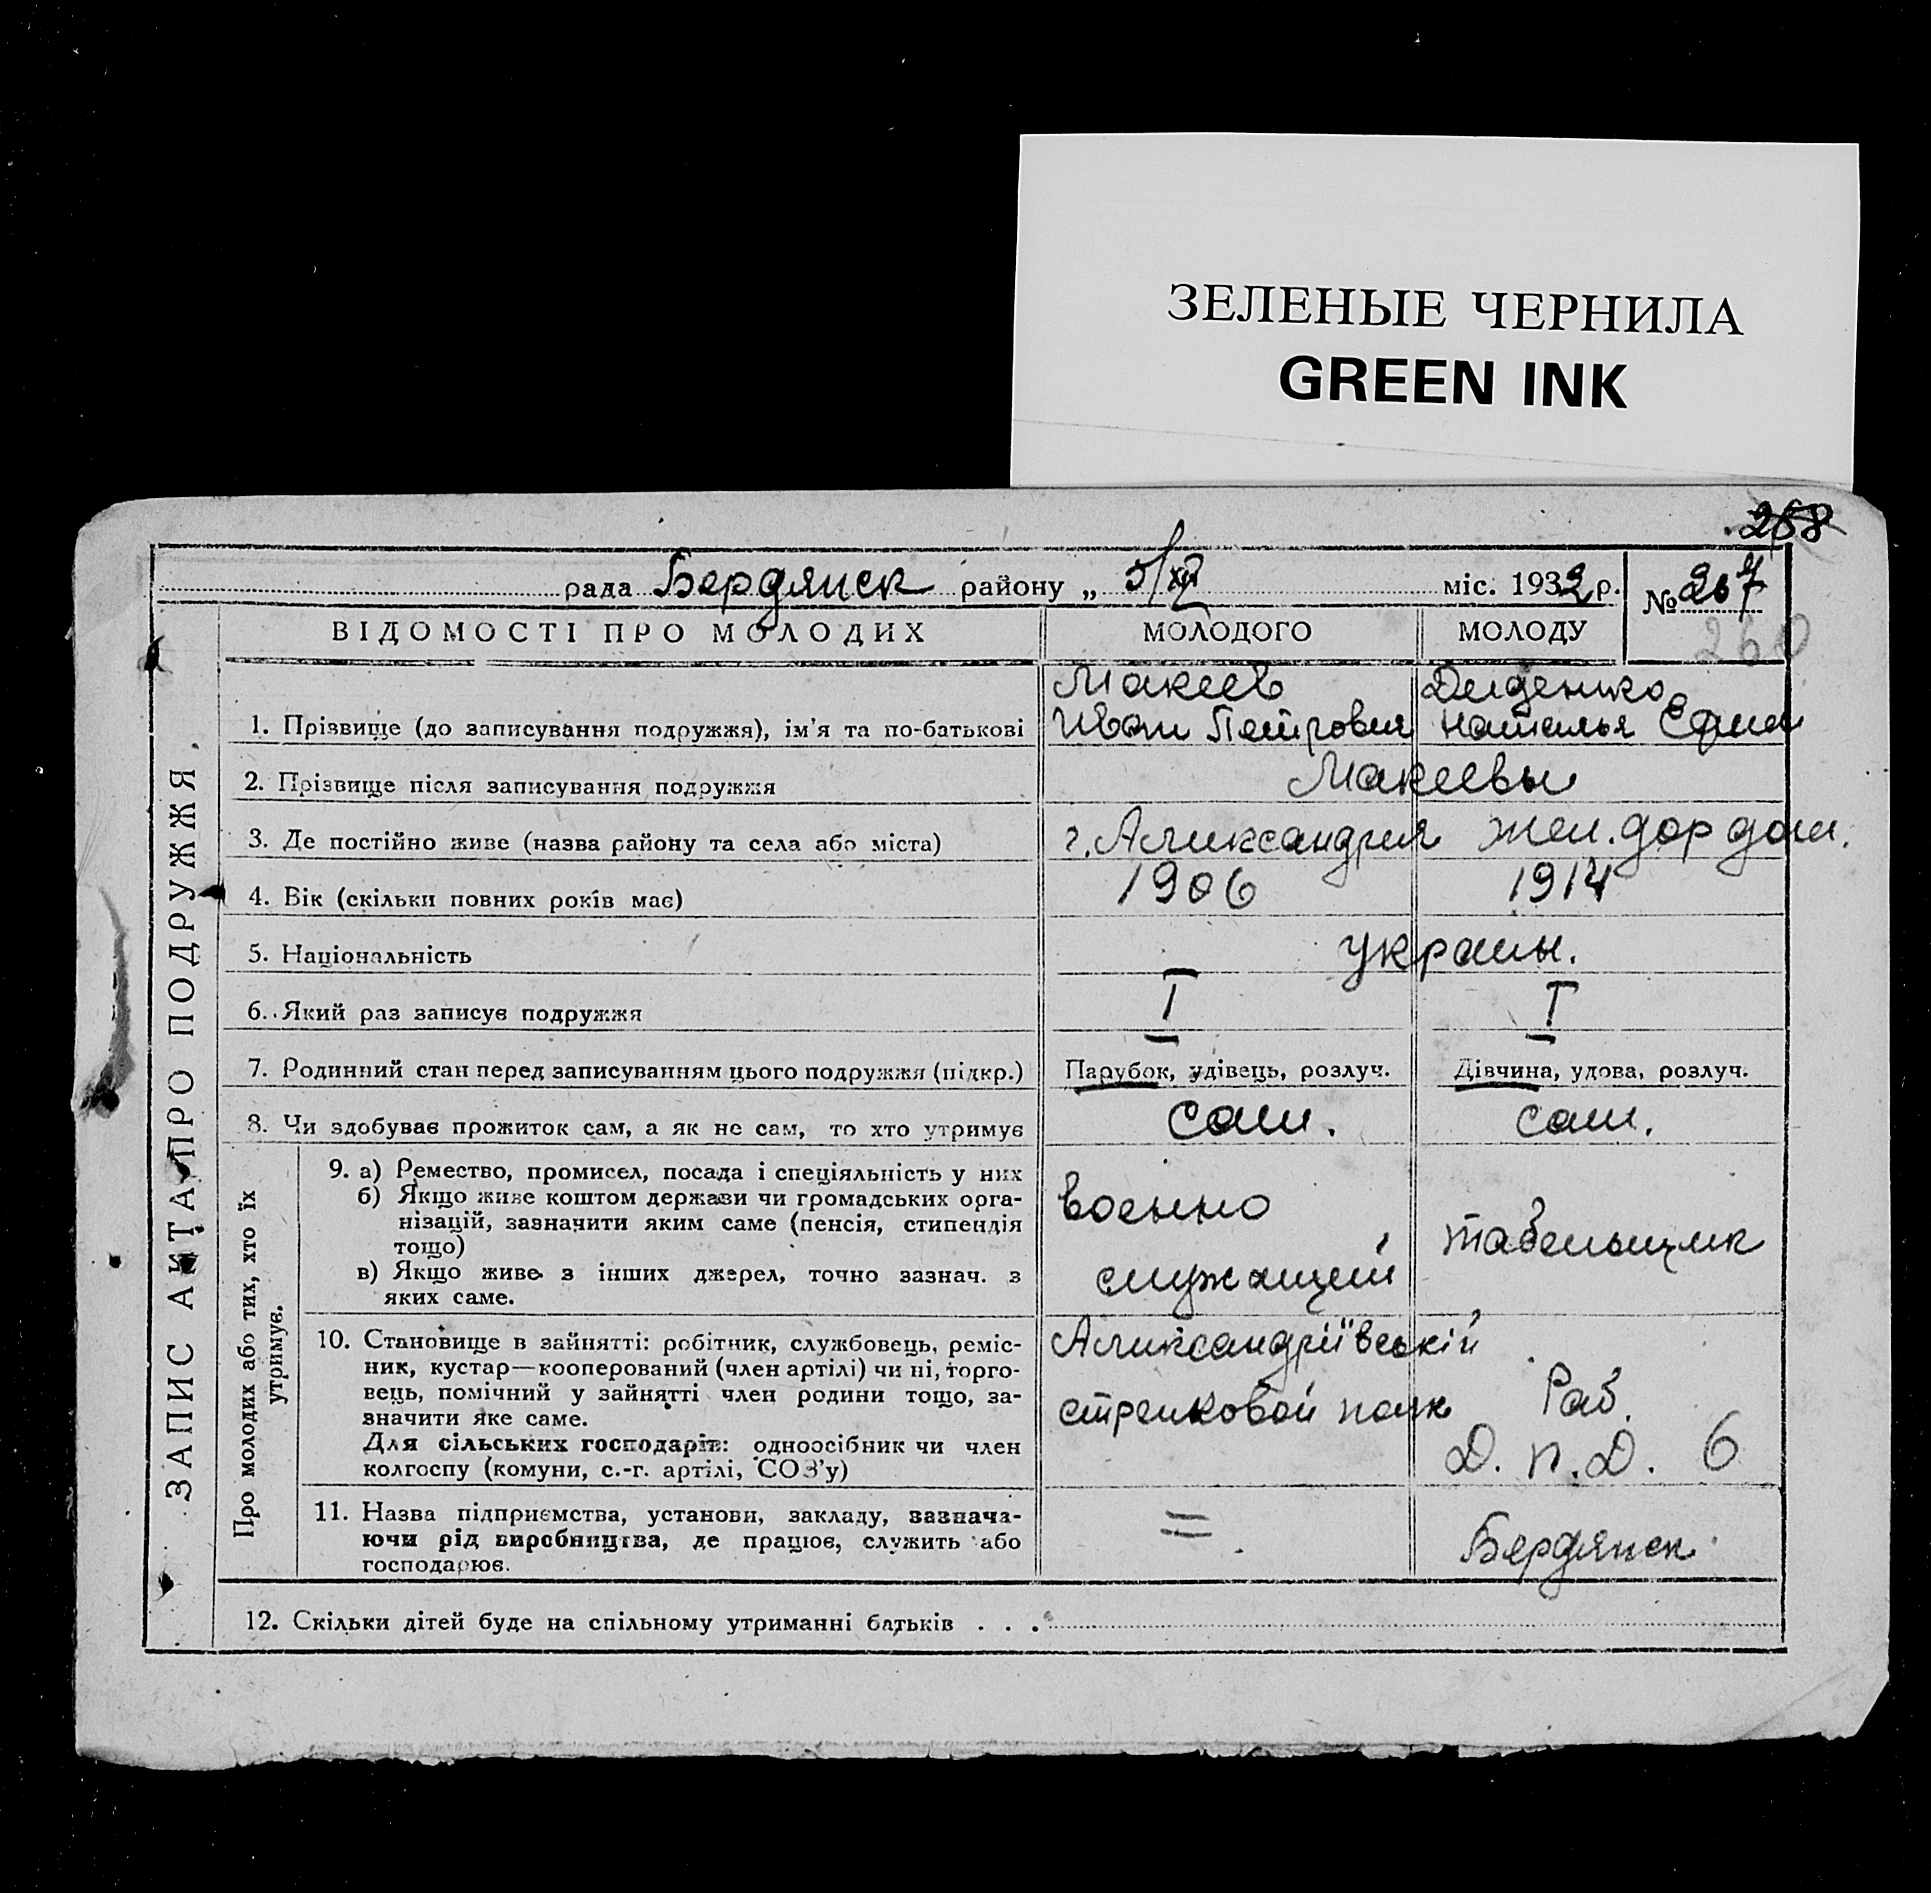 ЗЕЛЕНЫЕ ЧЕРНИЛА
GREEN INK
258
рада Бердянск району „ 5/XII міс. 1932 р. № 267
260
ЗАПИС АКТА ПРО ПОДРУЖЖЯ.
ВІДОМОСТІ ПРО МОЛОДИХ МОЛОДОГО МОЛОДУ
Макеев Диденко
1. Прізвище (до записування подружжя), ім'я та по-батькові Иван Петрович Наталья Ефим
2. Прізвище після записування подружжя Макеевы
3. Де постійно живе (назва району та села або міста) г. Александрия жел. дор дом.
4. Вік (скільки повних років має) 1906 1914
5. Національність украин.
6. Який раз записує подружжя I I
7. Родинний стан перед записуванням цього подружжя (підкр.) Парубок, удівець, розлуч. Дівчина, удова, розлуч.
8. Чи здобуває прожиток сам, а як не сам, то хто утримує сам. сам.
Про молодих або тих, хто їх
утримує.
9. а) Ремество, промисел, посада і спеціяльність у них
б) Якщо живе коштом держави чи громадських орга-
нізацій, зазначити яким саме (пенсія, стипендія
тощо)
в) Якщо живе з інших джерел, точно зазнач. з
яких саме.
военно
служащий
табельщик
10. Становище в зайнятті: робітник, службовець, реміс-
ник, кустар—кооперований (член артілі) чи ні, торго-
вець, помічний у зайнятті член родини тощо, за-
значити яке саме.
Для сільських господарів: одноосібник чи член
колгоспу (комуни, с.-г. артілі, СОЗ'у)
Александріївській
стрелковой полк
Раб.
Д. п. Д. 6
11. Назва підприємства, установи, закладу, зазнача-
ючи рід виробництва, де працює, служить або
господарює.
=
Бердянск
12. Скільки дітей буде на спільному утриманні батьків . . .